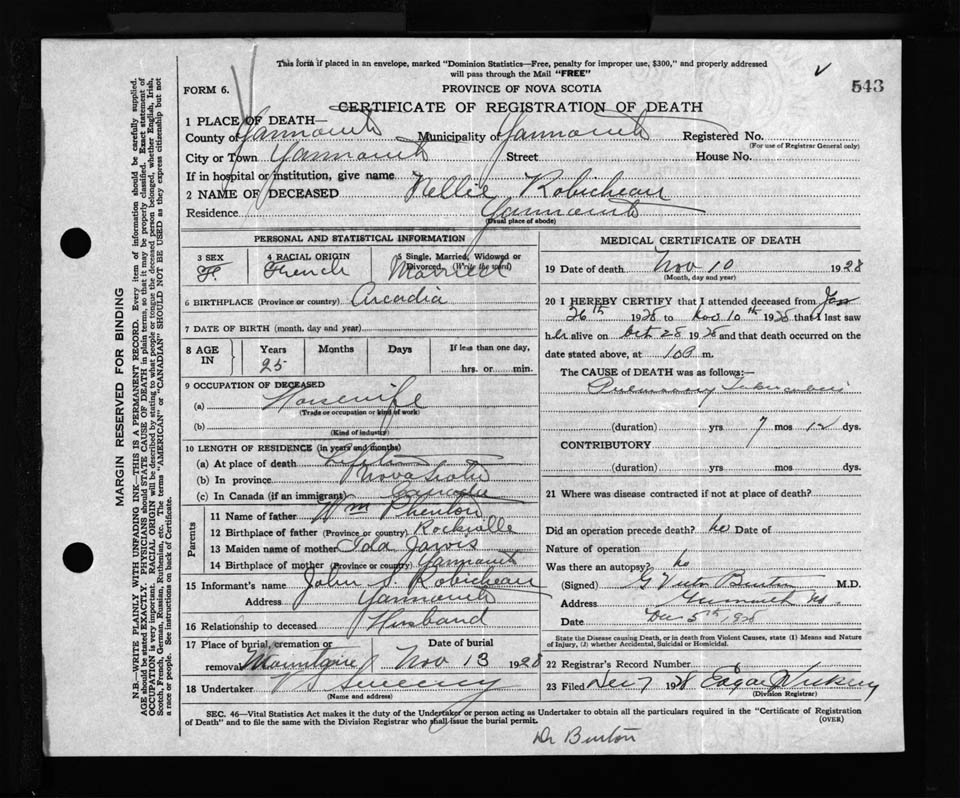 This form if placed in an envelope, marked "Dominion Statistics—Free, penalty for improper use, $300," and properly addressed
will pass through the Mail "FREE"
FORM 6.
PROVINCE OF NOVA SCOTIA
543
CERTIFICATE OF REGISTRATION OF DEATH
1 PLACE OF DEATH—
County of Yarmouth Municipality of Yarmouth Registered No.
(For use of Registrar General only)
City or Town Yarmouth Street House No.
If in hospital or institution, give name
2 NAME OF DECEASED Nellie Robicheau
Residence Yarmouth
(Usual place of abode)
PERSONAL AND STATISTICAL INFORMATION
3 SEX 4 RACIAL ORIGIN 5 Single, Married, Widowed or
Divorced. (Write the word)
F. French Married
6 BIRTHPLACE (Province or country) Arcadia
7 DATE OF BIRTH (month, day and year)
8 AGE IN Years Months Days If less than one day,
25 hrs. or min.
9 OCCUPATION OF DECEASED
(a) Housewife
(Trade or occupation or kind of work)
(b)
(Kind of industry)
10 LENGTH OF RESIDENCE (in years and months)
(a) At place of death Lifetime
(b) In province Nova Scotia
(c) In Canada (if an immigrant) Canada
Parents
11 Name of father Wm Rhenton
12 Birthplace of father (Province or country) Rockville
13 Maiden name of mother Ida Jarvis
14 Birthplace of mother (Province or country) Yarmouth
15 Informant's name John S. Robicheau
Address Yarmouth
16 Relationship to deceased Husband
17 Place of burial, cremation or Date of burial
removal Nov 13 1928
18 Undertaker V S Sweeney
(Name and address)
MEDICAL CERTIFICATE OF DEATH
19 Date of death Nov 10 1928
(Month, day and year)
20 I HEREBY CERTIFY that I attended deceased from Jan
26th 1928 to Nov 10th 1928 that I last saw
her alive on Oct 28 1928 and that death occurred on the
date stated above, at m.
The CAUSE of DEATH was as follows:—
Pulmonary Tuberculosis
(duration) yrs 7 mos 12 dys.
CONTRIBUTORY
(duration) yrs. mos. dys.
21 Where was disease contracted if not at place of death?
Did an operation precede death? no Date of
Nature of operation
Was there an autopsy? no
(Signed) G Victor Burton M.D.
Address Yarmouth NS
Date Dec 5th 1928
State the Disease causing Death, or in death from Violent Causes, state (1) Means and Nature
of Injury, (2) whether Accidental, Suicidal or Homicidal.
22 Registrar's Record Number
23 Filed Dec 7 1928 Edgar
(Division Registrar)
SEC. 46—Vital Statistics Act makes it the duty of the Undertaker or person acting as Undertaker to obtain all the particulars required in the "Certificate of Registration
of Death" and to file the same with the Division Registrar who shall issue the burial permit. (OVER)
Dr Burton
MARGIN RESERVED FOR BINDING
N.B.—WRITE PLAINLY WITH UNFADING INK—THIS IS A PERMANENT RECORD. Every item of information should be carefully supplied.
AGE should be stated EXACTLY. PHYSICIANS should STATE CAUSE OF DEATH in plain terms, so that it may be properly classified. Exact statement of
OCCUPATION is very important. RACIAL ORIGIN will be described by stating to what people or tongue the deceased person belonged, whether English, Irish,
Scotch, French, German, Russian, Ruthenian, etc. The terms "AMERICAN" or "CANADIAN" SHOULD NOT BE USED as they express citizenship but not
a race or people. See instructions on back of Certificate.